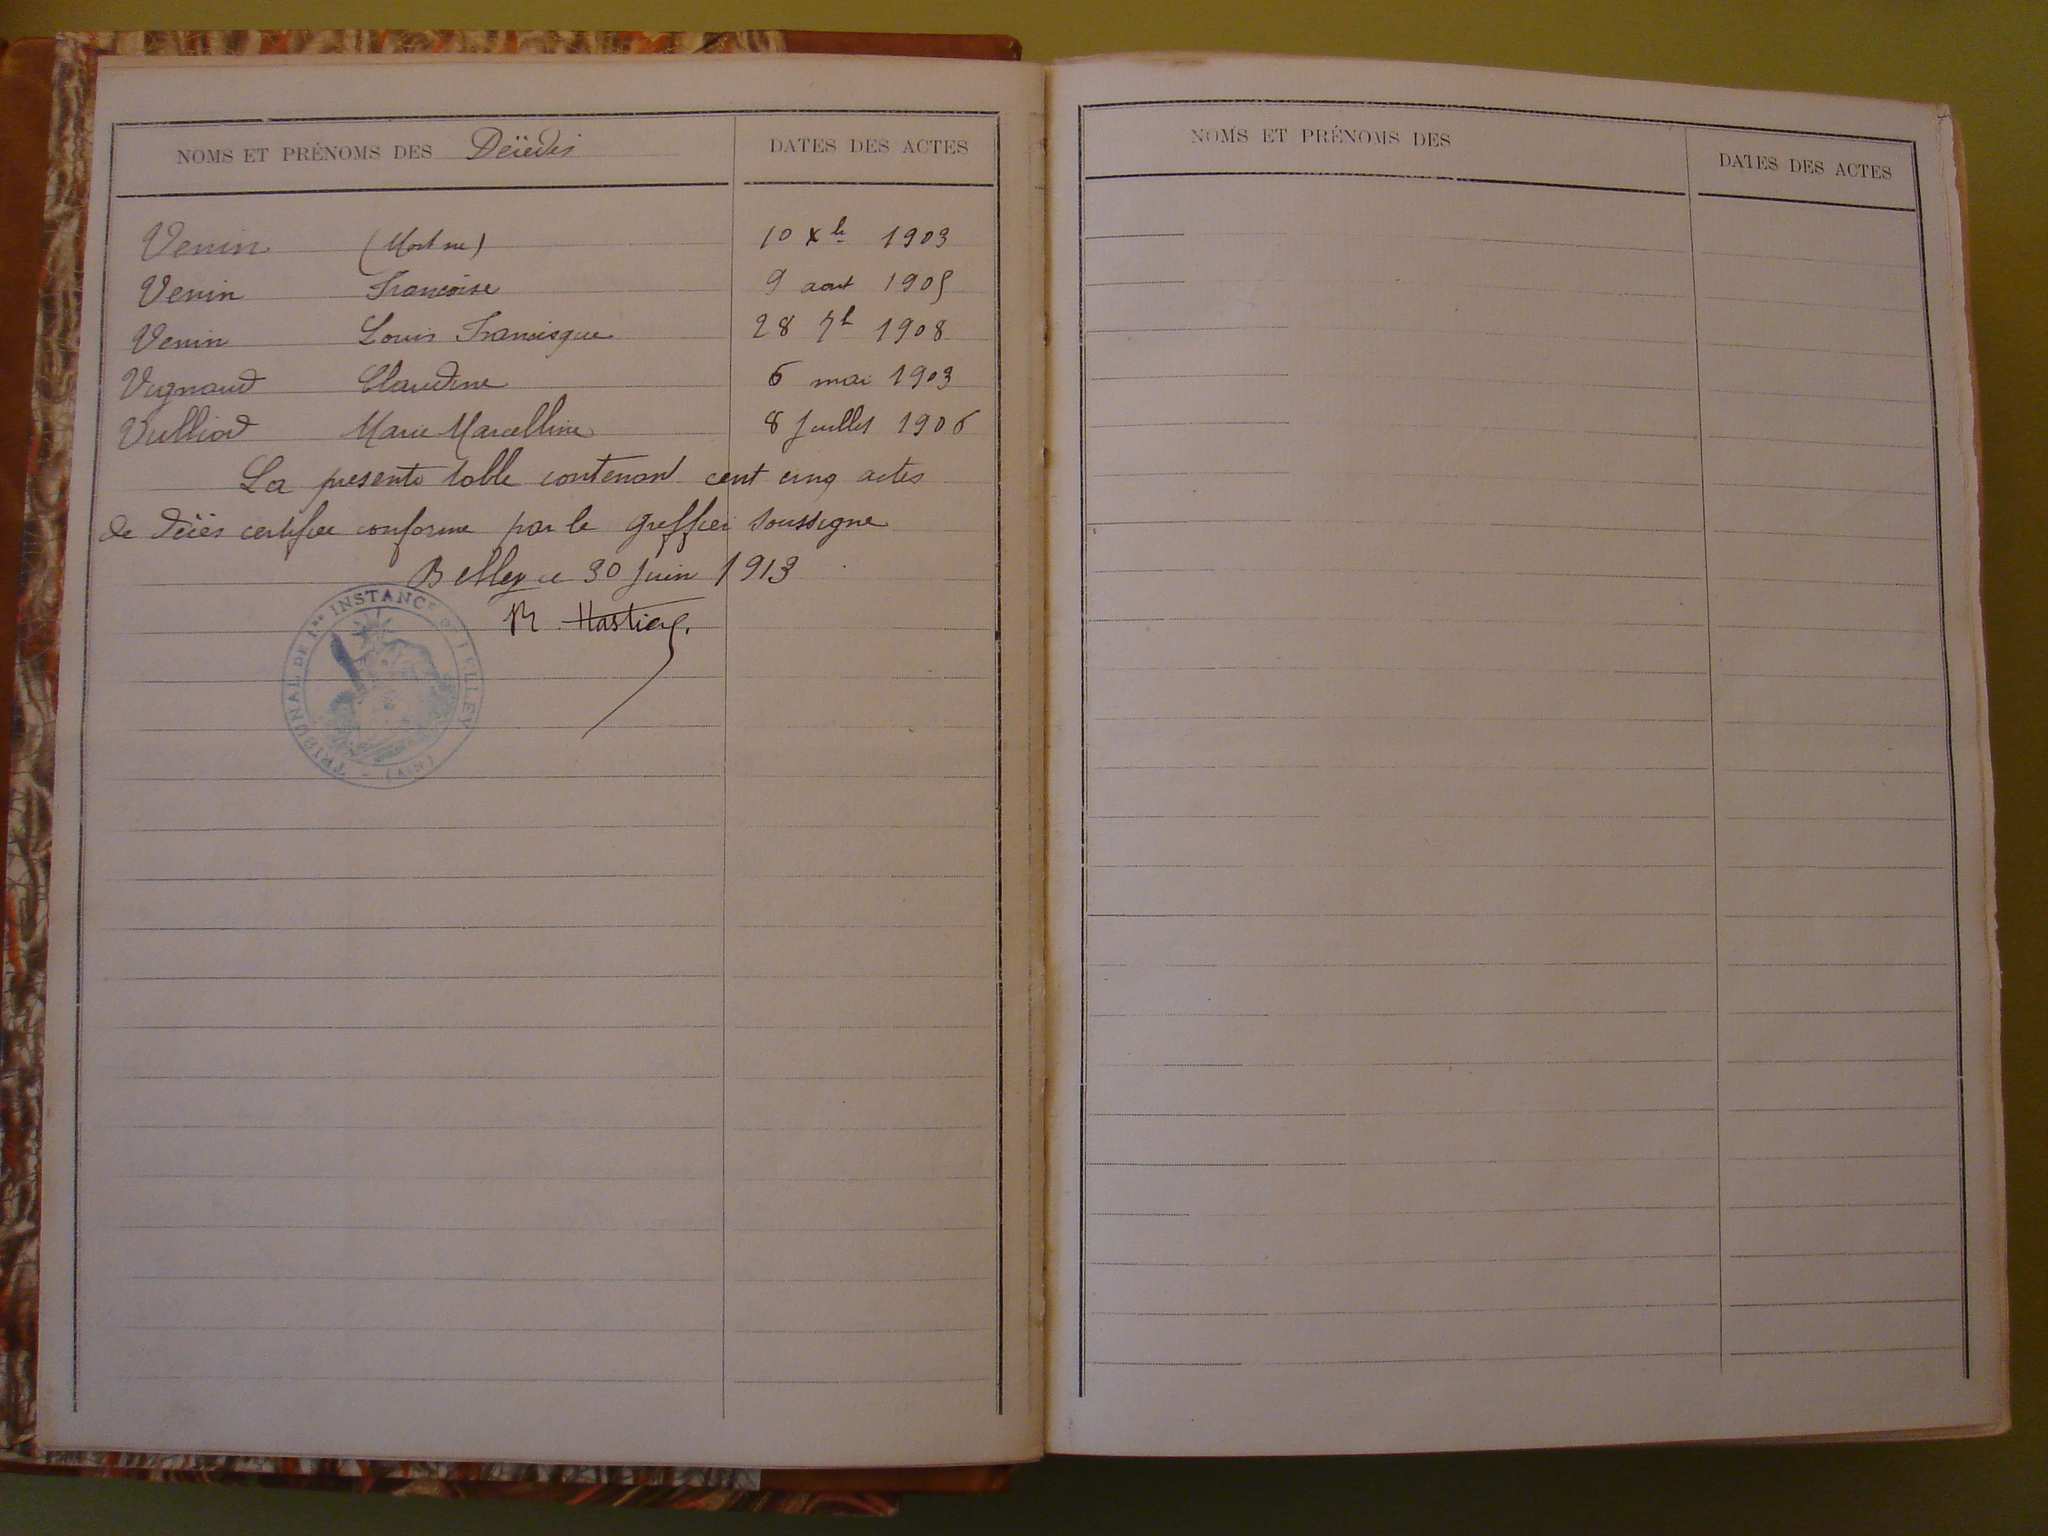 NOMS ET PRÉNOMS DES Décédés DATES DES ACTES
Venin (Mort né) 10 Xbre 1903
Venin Françoise 9 aout 1905
Venin Louis Francisque 28 7b 1908
Vignaud Claudine 6 mai 1903
Vulliod Marie Marcelline 8 Juillet 1906
La presente table contenant cent cinq actes
de décès certifiée conforme par le greffier soussigné
Belley ce 30 Juin 1913
TRIBUNAL DE 1re INSTANCE DE BELLEY
(AIN)
NOMS ET PRÉNOMS DES
DATES DES ACTES